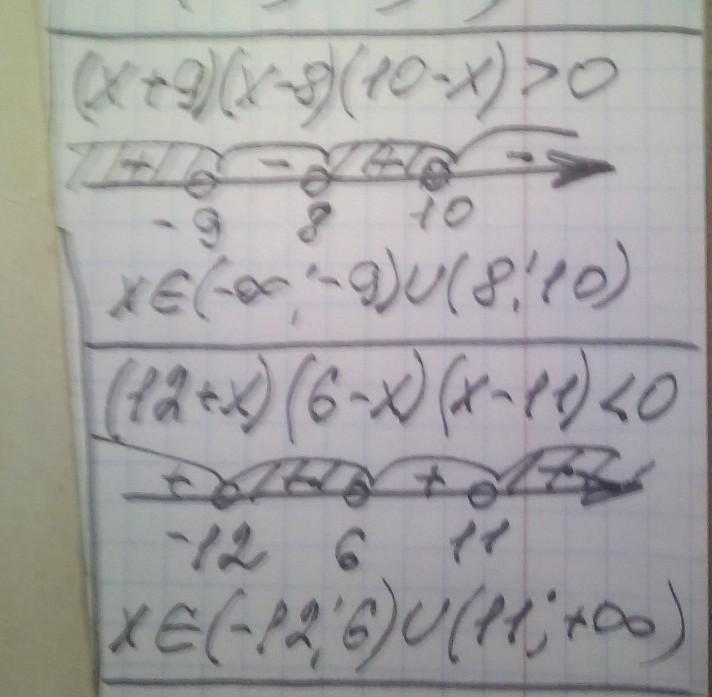 (x+9)(x-8)(10-x)>0
+ - + -
-9 8 10
x∈(-∞;-9)∪(8;10)
(12+x)(6-x)(x-11)<0
+ +
-12 6 11
x∈(-12;6)∪(11;+∞)